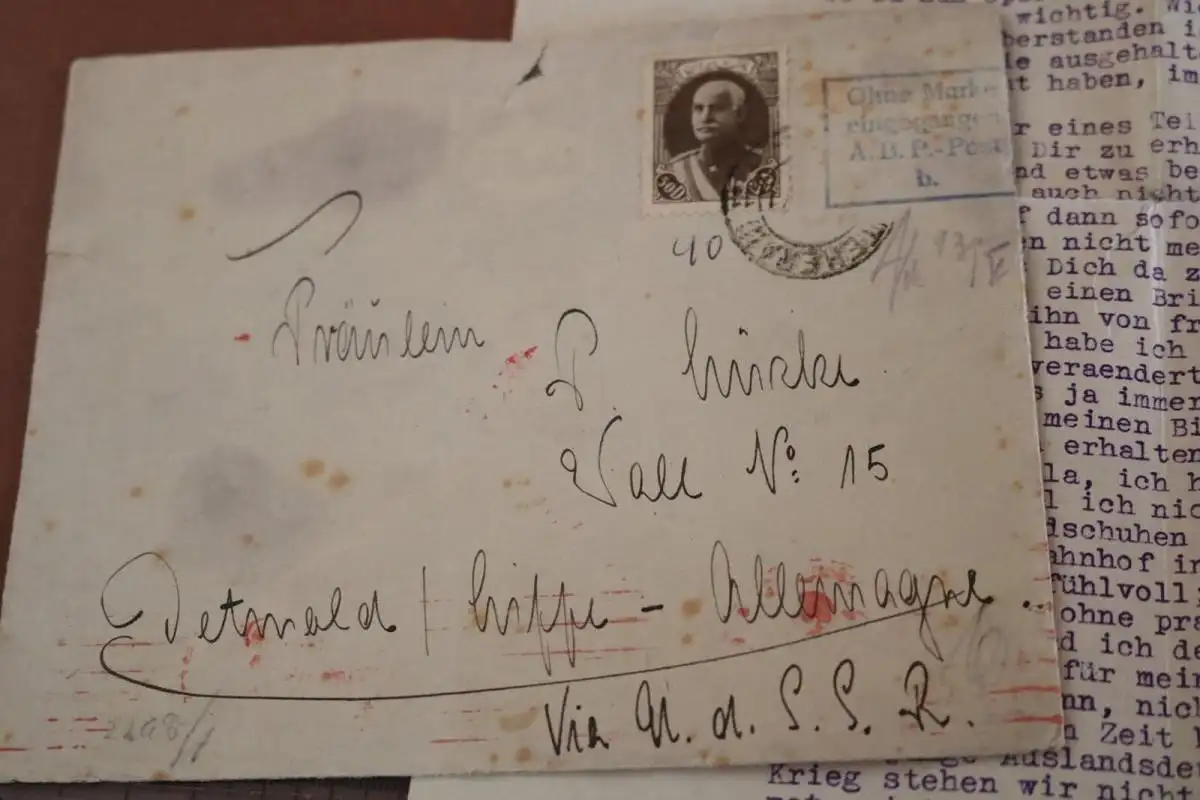 Ohne Marke
eingegangen
A.B.P.-Post
b.
500
TEHERAN
40
Fräulein
P. Lürkke
Wall No: 15
Detmold / Lippe - Allemagne.
Via U. d. S. S. R.
2298/1
wichtig. Wi
berstanden i
ie ausgehalt
t haben, im
r eines Teil
Dir zu erh
nd etwas be
auch nicht
f dann sofo
en nicht me
Dich da z
einen Bri
ihn von fr
habe ich
veraendert
s ja immer
meinen Bi
erhalten
la, ich h
l ich nic
dschuhen
ahnhof in
fühlvoll
ohne pra
d ich de
für mein
nn, nich
n Zeit
Auslandsde
Krieg stehen wir nicht